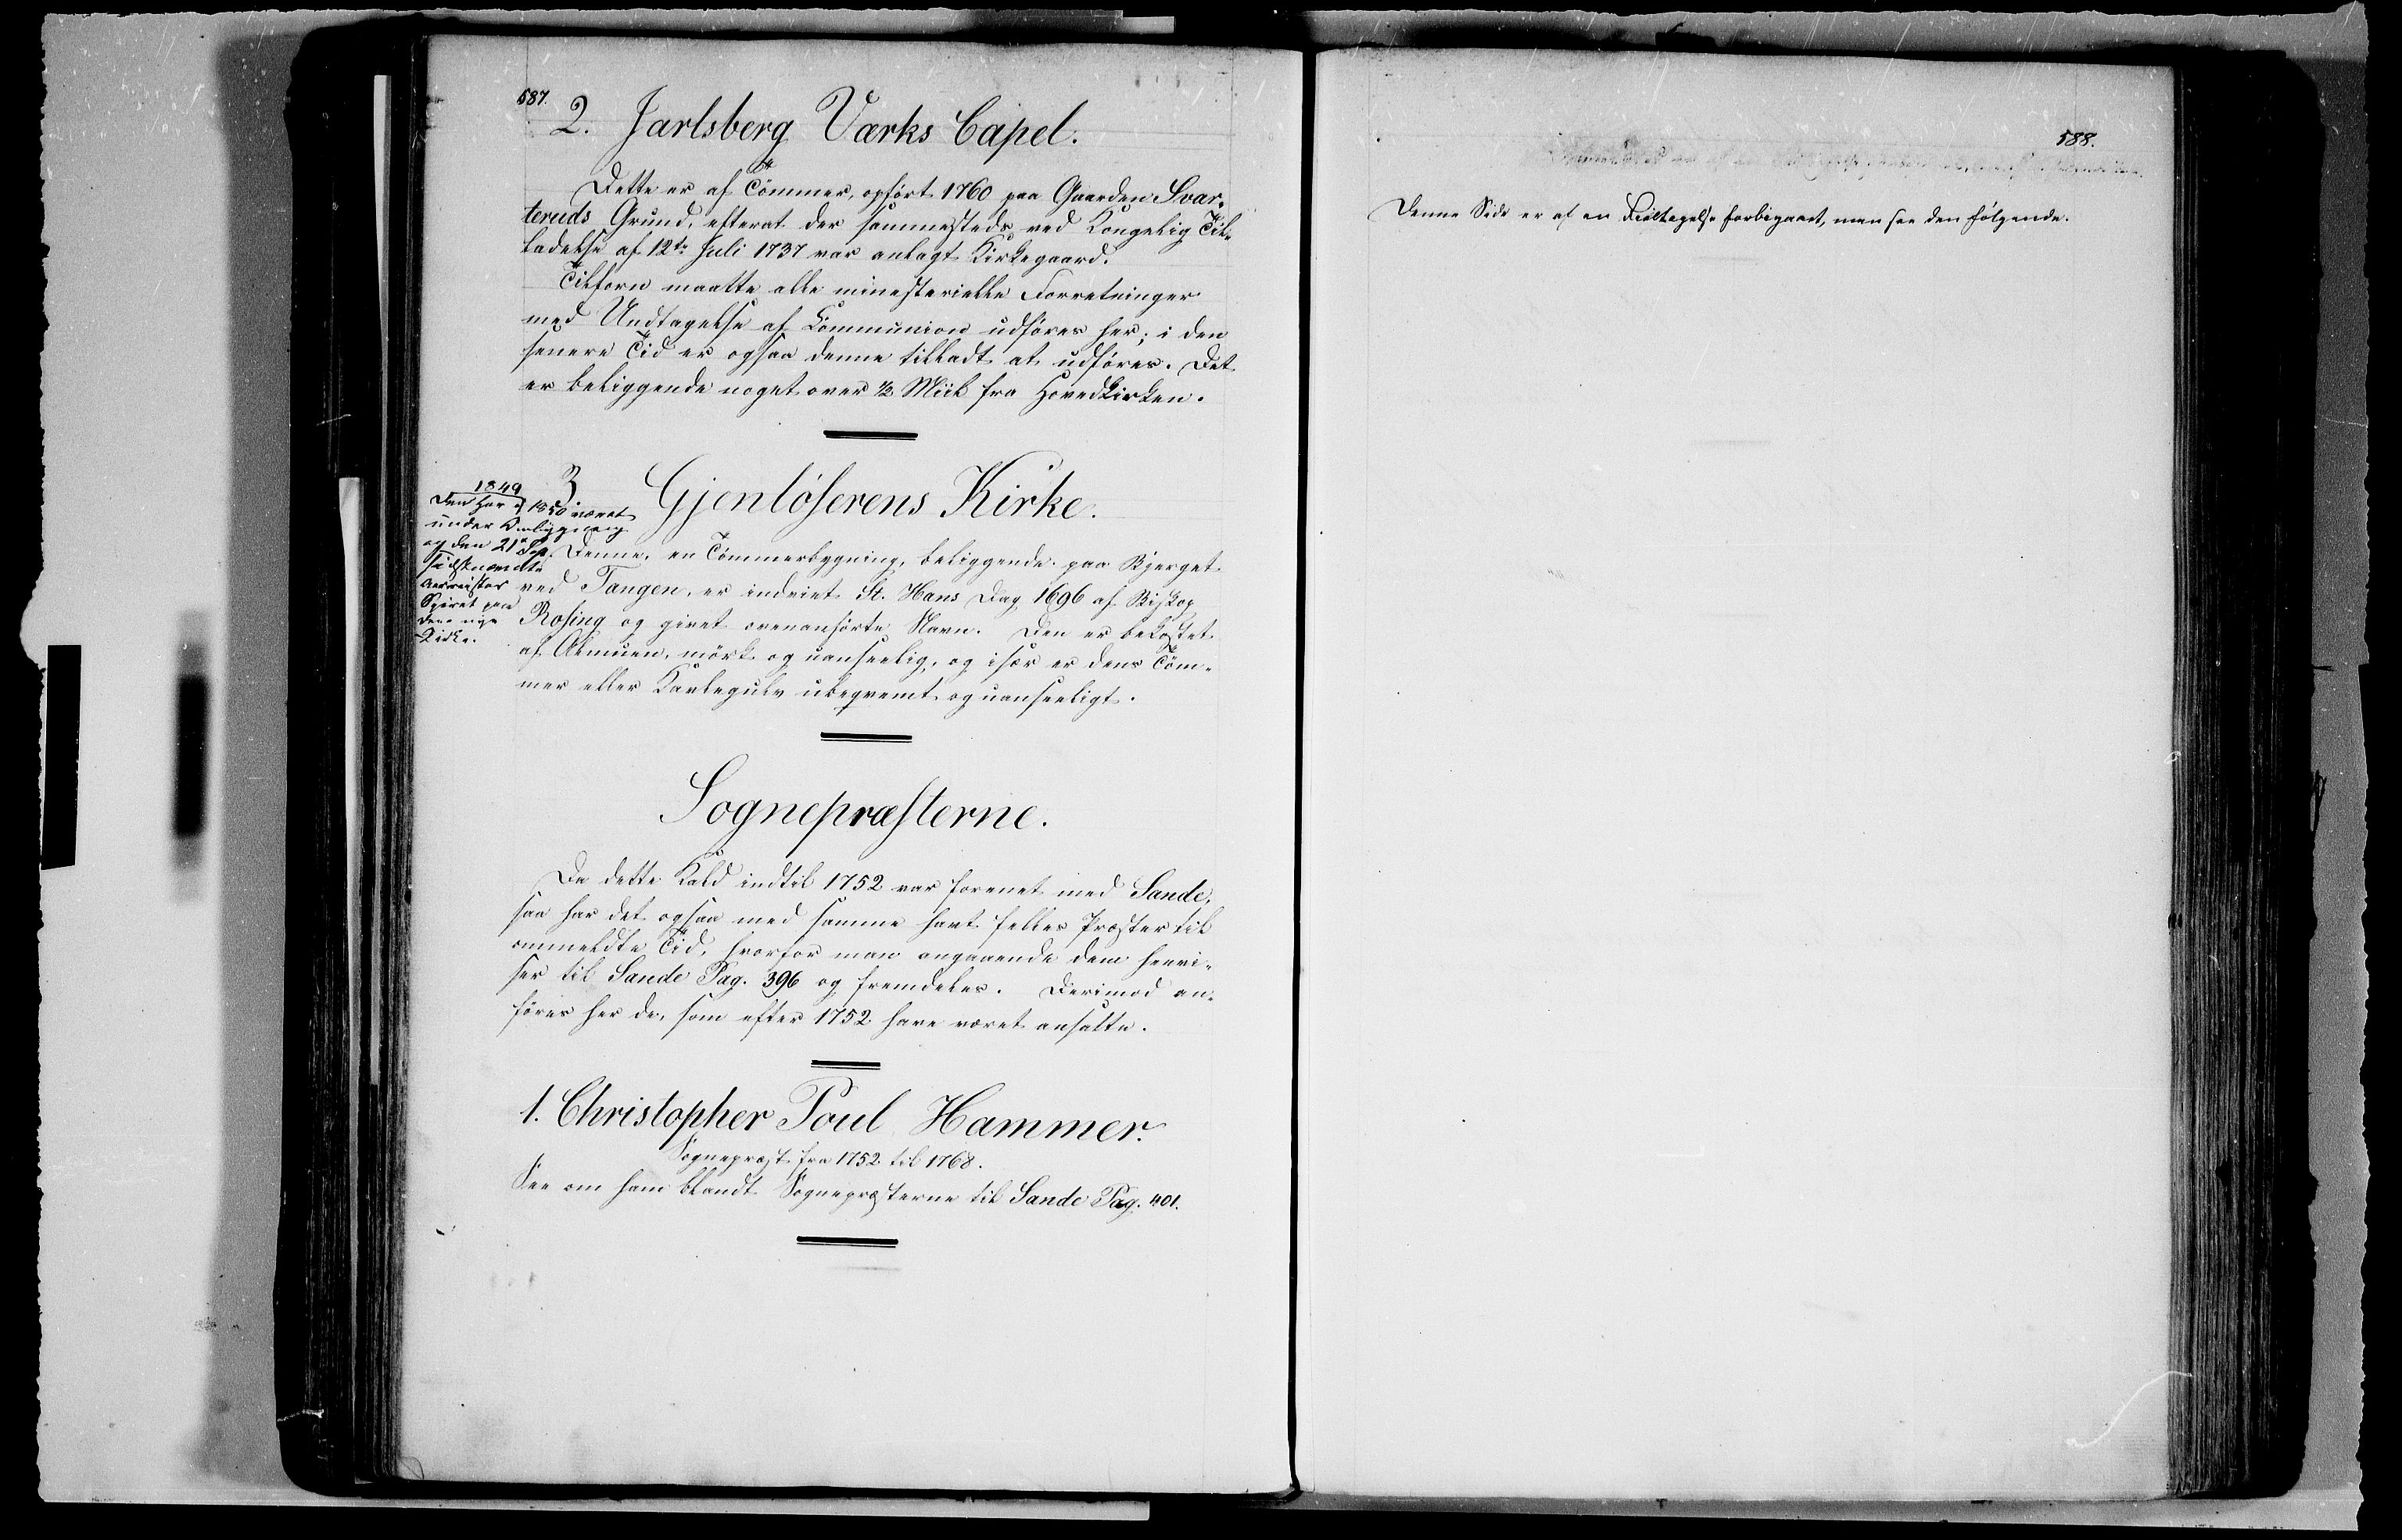 587.
2. Jarlsberg Værks Capel.
Dette er af Tömmer, opført 1760 paa Gaarden Svar-
teruds Grund, efterat der sammesteds ved Kongelig Til-
ladelse af 12te Juli 1737 var anlagt Kirkegaard.
Tilforn maatte alle ministerielle Forretninger
med Undtagelse af Communion udføres her; i den
senere Tid er ogsaa denne tilladt at udføres. Det
er beliggende noget over ½ Miil fra Hovedkirken.
3 Gjenlöserens Kirke.
1849
Den har i 1850 været
under Ombygning
og den 21de Sep.
sidstnævnte
Spiret paa
den nye
Kirke.
Denne, en Tömmerbygning, beliggende paa Bjerget
ved Tangen, er indviet St. Hans Dag 1696 af Biskop
Rosing og givet ovenanførte Navn. Den er bekostet
af Almuen, mörk og uanseelig, og især er dens Töm-
mer eller Kavlegulv ubeqvemt og uanseeligt.
Sognepræsterne.
Da dette Kald indtil 1752 var forenet med Sande,
saa har det ogsaa med samme havt felles Præster til
ommeldte Tid, hvorfor man angaaende dem henvi-
ser til Sande Pag. 396 og fremdeles. Derimod an-
føres her de, som efter 1752 have været ansatte.
1. Christopher Poul Hammer.
Sognepræst fra 1752 til 1768.
See om ham blandt Sognepræsterne til Sande Pag. 401.
588.
Denne Side er af en Feiltagelse forbigaaet, man see den følgende.